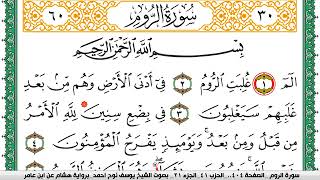 ٣٠ سُورَةُ الرُّومِ ٦٠
بِسْمِ اللَّهِ الرَّحْمَٰنِ الرَّحِيمِ
الٓمٓ ١ غُلِبَتِ الرُّومُ ٢ فِي أَدْنَى الْأَرْضِ وَهُم مِّنۢ بَعْدِ
غَلَبِهِمْ سَيَغْلِبُونَ ٣ فِي بِضْعِ سِنِينَ لِلَّهِ الْأَمْرُ
مِن قَبْلُ وَمِنۢ بَعْدُ وَيَوْمَئِذٍ يَفْرَحُ الْمُؤْمِنُونَ ٤
سورة الروم _الصفحة ٤٠٤.. الحزب ٤١_الجزء ٢١.. بصوت الشيخ يوسف نوح احمد برواية هشام عن ابن عامر